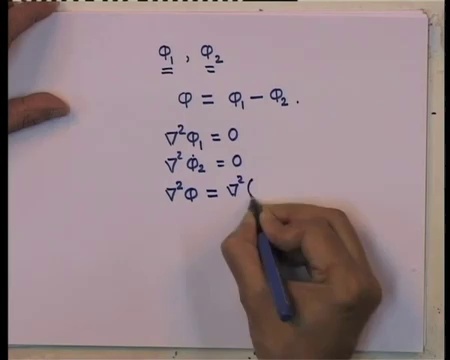 φ₁ , φ₂
φ = φ₁ − φ₂ .
∇²φ₁ = 0
∇²φ₂ = 0
∇²φ = ∇²(